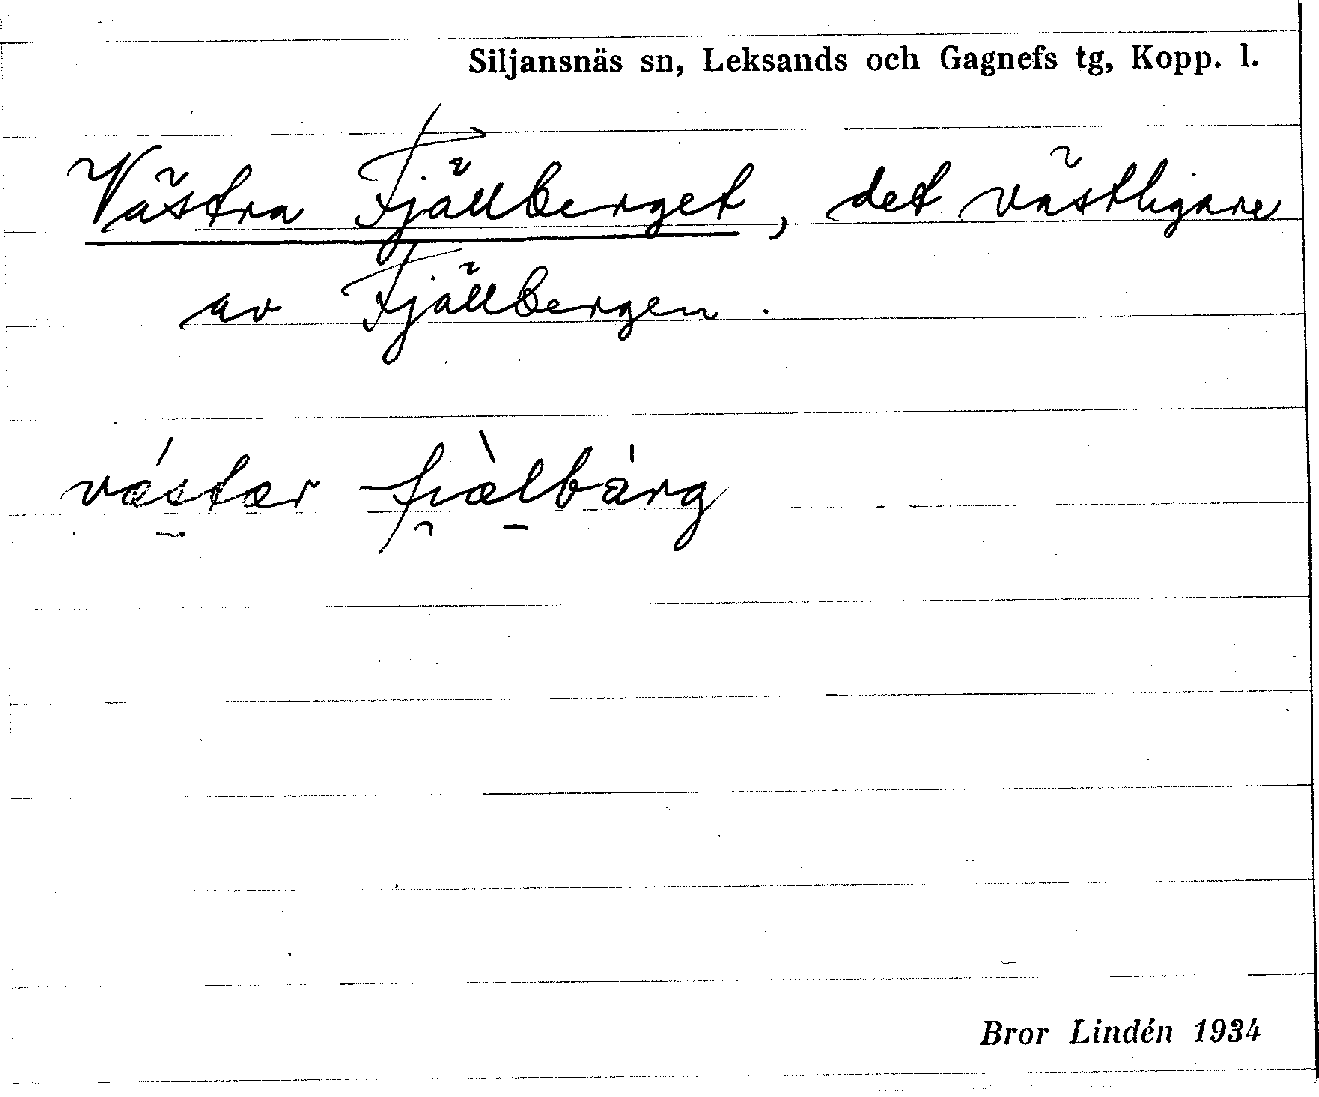 Siljansnäs sn, Leksands och Gagnefs tg, Kopp. l.
Västra Fjällberget, det västligare
av Fjällbergen.
vǽstær fi̯æ̀lbàrg
Bror Lindén 1934